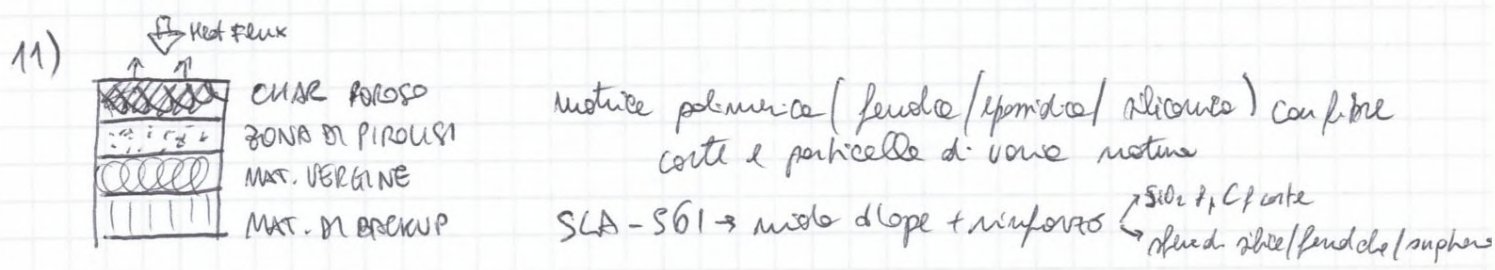 11)
Heat Flux
CHAR POROSO
ZONA DI PIROLISI
MAT. VERGINE
MAT. DI BACKUP
matrice polimerica (fenolica/epossidica/siliconica) con fibre
corte e particelle di varia natura
SLA-561 → + rinforzo
SiO2 f, Cf corte
sfere di silice/fenoliche/sughero